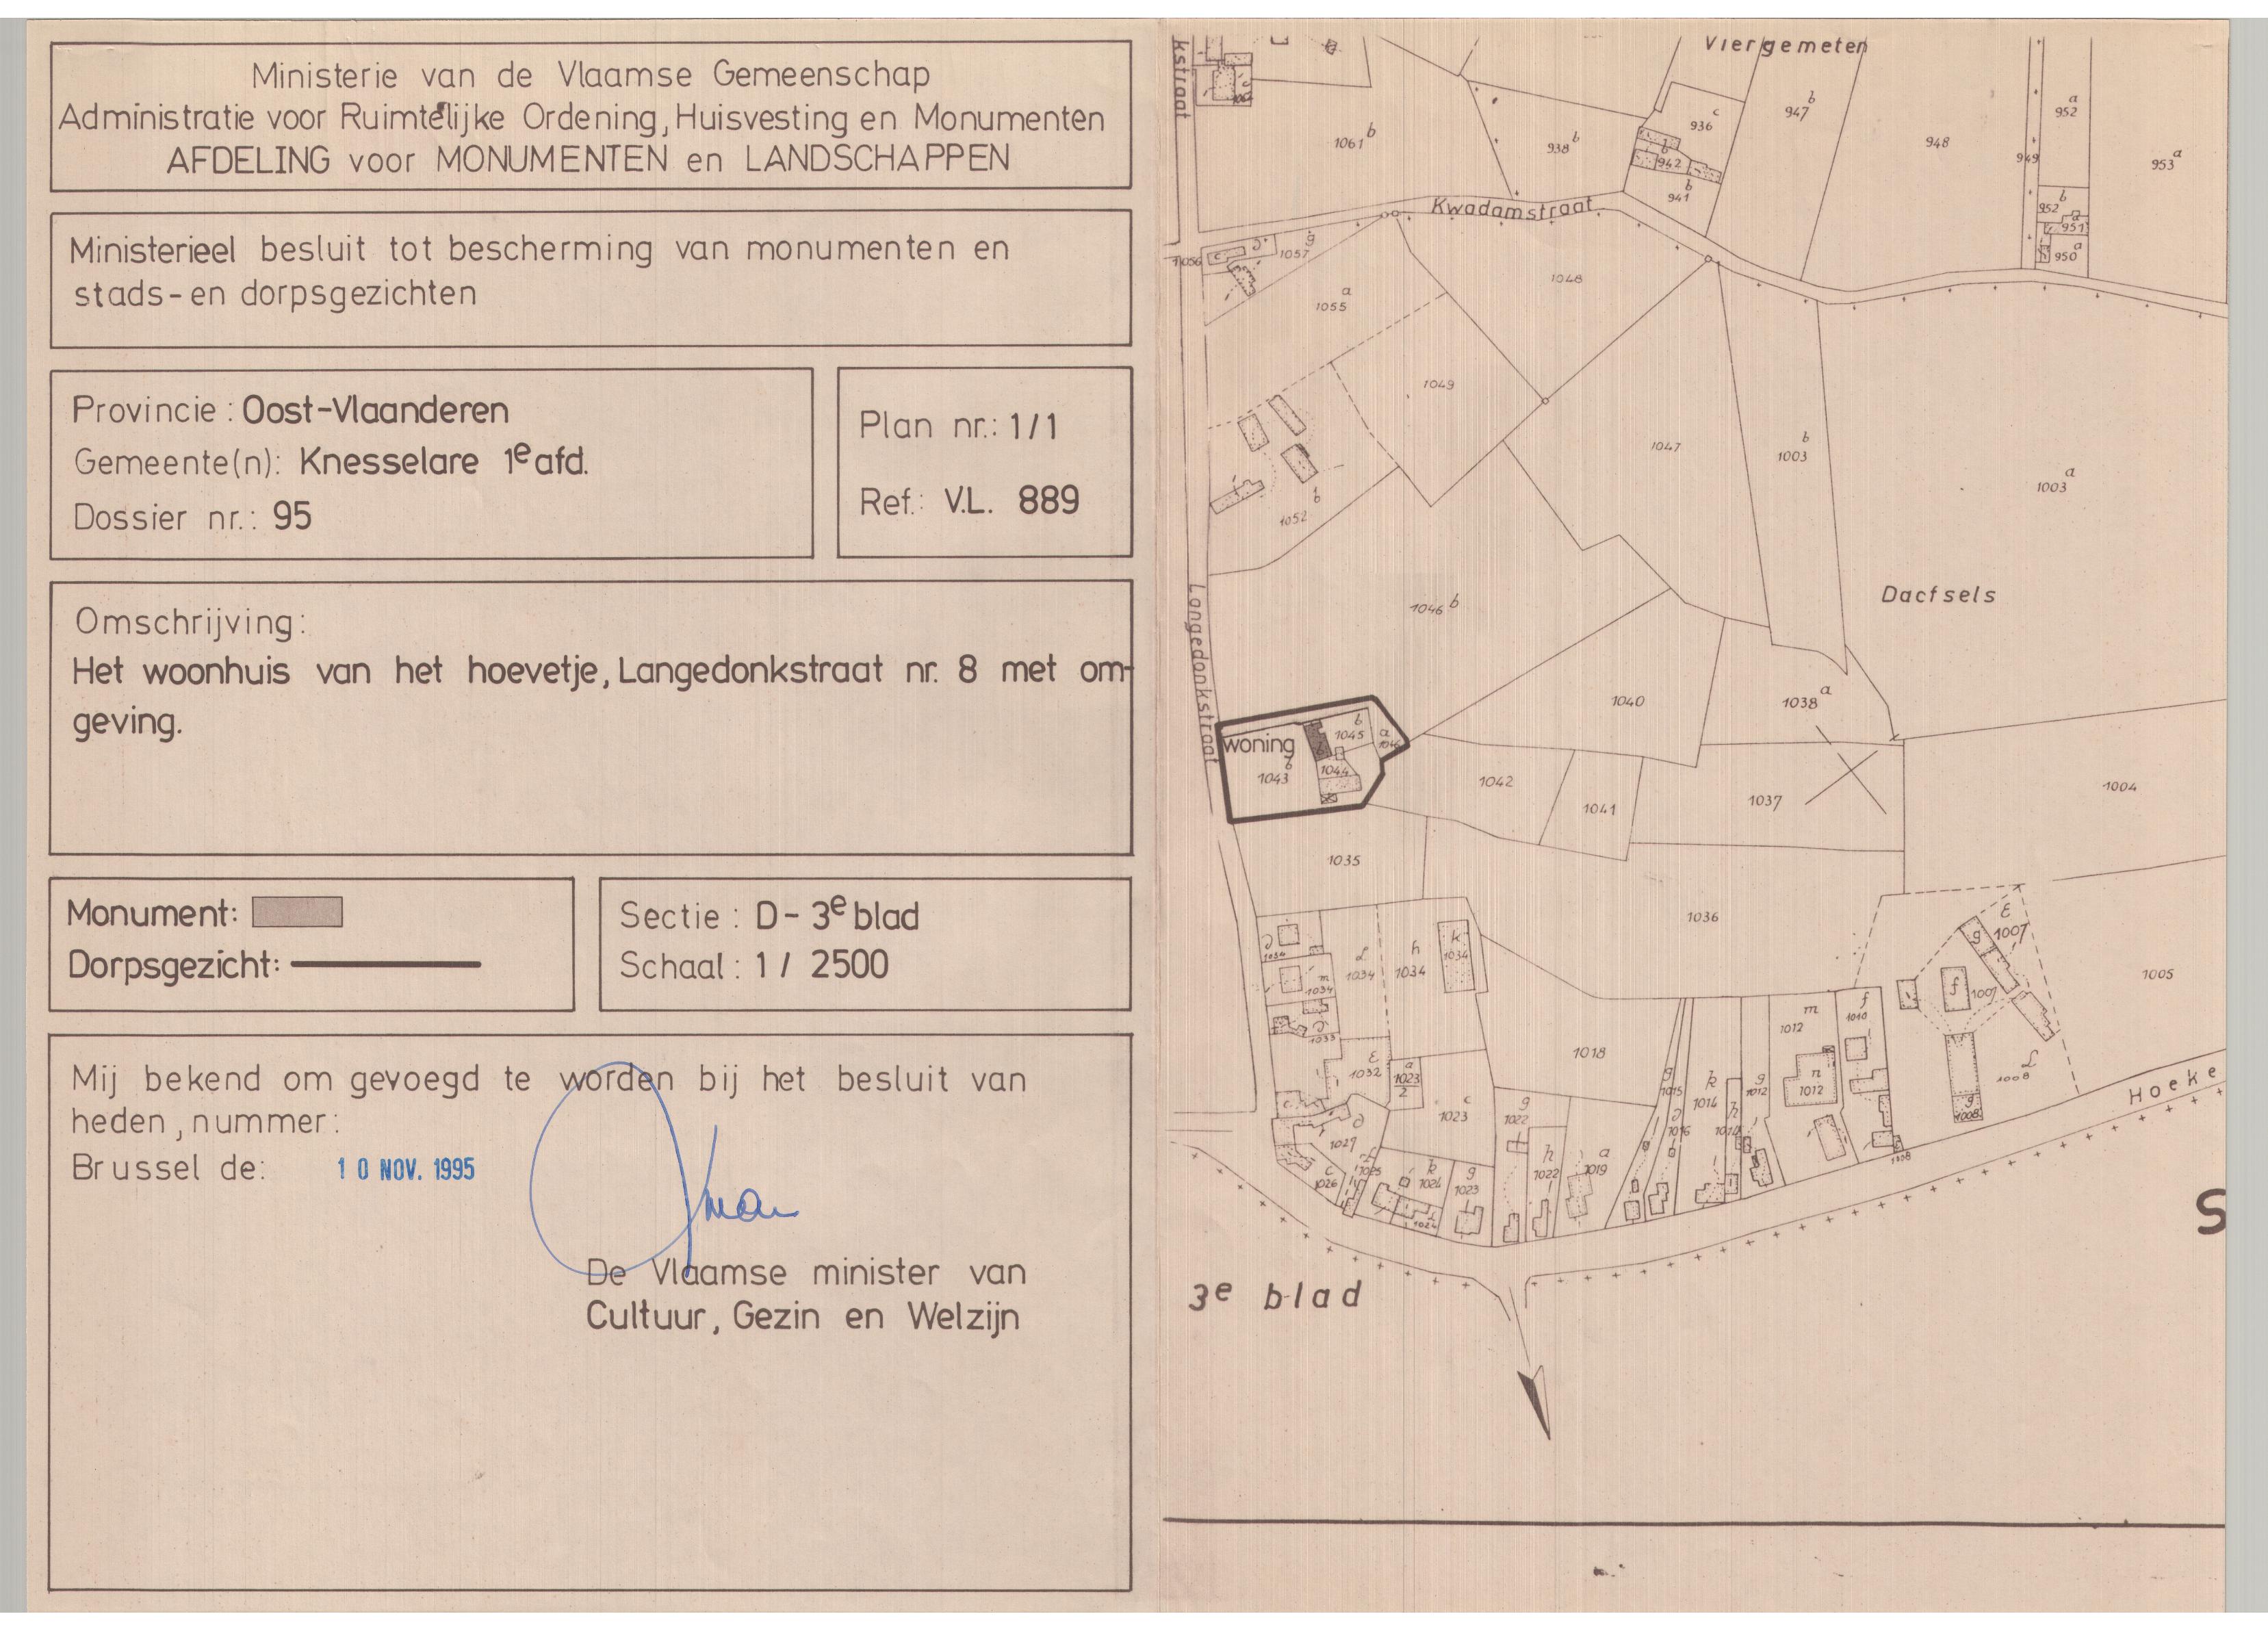 Ministerie van de Vlaamse Gemeenschap
Administratie voor Ruimtelijke Ordening, Huisvesting en Monumenten
AFDELING voor MONUMENTEN en LANDSCHAPPEN
Ministerieel besluit tot bescherming van monumenten en
stads-en dorpsgezichten
Provincie : Oost-Vlaanderen
Gemeente(n): Knesselare 1e afd.
Dossier nr.: 95
Plan nr.: 1/1
Ref.: V.L. 889
Omschrijving:
Het woonhuis van het hoevetje, Langedonkstraat nr. 8 met om-
geving.
Monument:
Dorpsgezicht:
Sectie : D- 3e blad
Schaal : 1 / 2500
Mij bekend om gevoegd te worden bij het besluit van
heden, nummer:
Brussel de: 10 NOV. 1995
De Vlaamse minister van
Cultuur, Gezin en Welzijn
kstraat
Viergemeten
1061 b
938 b
936 c
942
941 b
947 b
948
949
952 a
953 a
952 b
951
950 a
Kwadamstraat
1056
1057 g
1055 a
1048
1049
1047
1003 b
1003 a
1052 b
1046 b
Langedonkstraat
Dacfsels
1040
1038 a
woning
1045 b
1043 b
1044
1042
1041
1037
1004
1035
1036
1034
1034 m
1034
1034 h
1034 k
1033
1032 E
1023 a
2
1023 c
1018
1022 g
1022 h
1019 a
1015 g
1016
1014 k
1014 h
1012 g
1012 m
1012 n
1010 f
1007 E
g
1007 f
1008
1008 g
1005
1008
1027
1026 c
1025
1024 k
1024
1023 g
Hoeke
S
3e blad